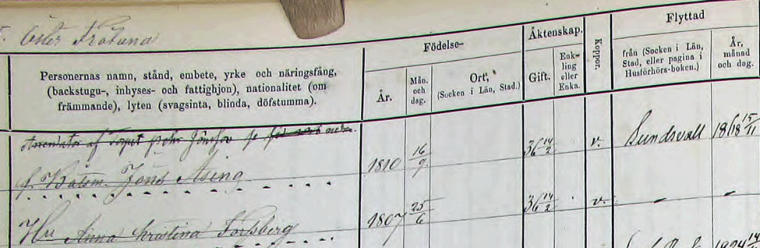 Öster Frötuna
Födelse-
Äktenskap.
Koppor.
Flyttad
Personernas namn, stånd, embete, yrke och näringsfång,
(backstugu-, inhyses- och fattighjon), nationalitet (om
främmande), lyten (svagsinta, blinda, döfstumma).
År.
Mån. och dag.
Ort, (Socken i Län, Stad.)
Gift.
Enkling eller Enka.
från (Socken i Län, Stad, eller pagina i Husförhörs-boken.)
År, månad och dag.
af
f. Båtsm. Jöns Åsing 1810 16/9 36 14/2 v. Sundsvall 1868 15/11
Hu Anna Christina Forsberg 1807 25/6 36 14/2 v. " "